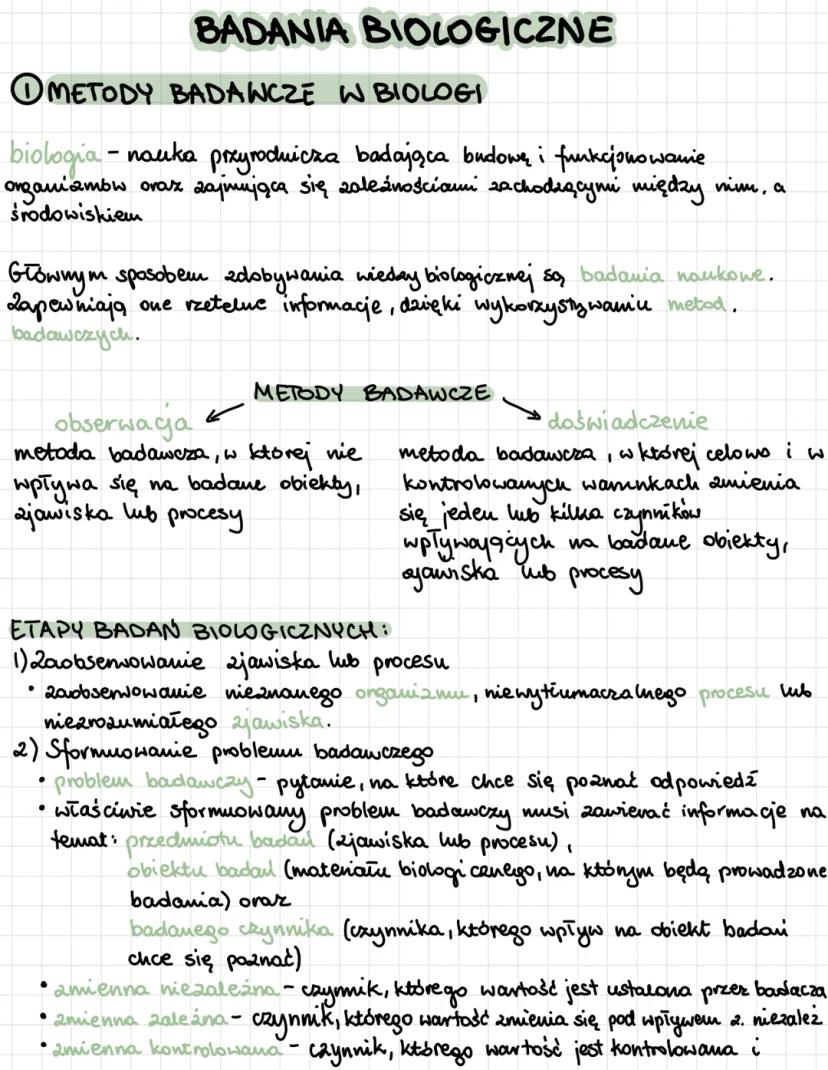 BADANIA BIOLOGICZNE
① METODY BADAWCZE W BIOLOGI
biologia - nauka przyrodnicza badająca budowę i funkcjonowanie
organizmów oraz zajmująca się zależnościami zachodzącymi między nimi, a
środowiskiem
Głównym sposobem zdobywania wiedzy biologicznej są badania naukowe.
Zapewniają one rzetelne informacje, dzięki wykorzystywaniu metod.
badawczych.
METODY BADAWCZE
obserwacja
metoda badawcza, w której nie
wpływa się na badane obiekty,
zjawiska lub procesy
doświadczenie
metoda badawcza, w której celowo i w
kontrolowanych warunkach zmienia
się jeden lub kilka czynników
wpływających na badane obiekty,
zjawiska lub procesy
ETAPY BADAŃ BIOLOGICZNYCH:
1) Zaobserwowanie zjawiska lub procesu
• zaobserwowanie nieznanego organizmu, niewytłumaczalnego procesu lub
niezrozumiałego zjawiska.
2) Sformuowanie problemu badawczego
• problem badawczy - pytanie, na które chce się poznać odpowiedź
• właściwie sformuowany problem badawczy musi zawierać informacje na
temat: przedmiotu badań (zjawiska lub procesu),
obiektu badań (materiału biologicznego, na którym będą prowadzone
badania) oraz
badanego czynnika (czynnika, którego wpływ na obiekt badań
chce się poznać)
• zmienna niezależna - czynnik, którego wartość jest ustalona przez badacza
• zmienna zależna - czynnik, którego wartość zmienia się pod wpływem z. niezależ
• zmienna kontrolowana - czynnik, którego wartość jest kontrolowana i